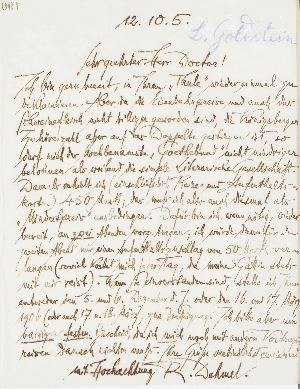 12.10.5.
L. Goldstein
Sehr geehrter Herr Doctor!
Ich bin gern bereit, in Ihrem „Thule“ wieder einmal zu
deklamieren. Aber da die Eisenbahnpreise und auch das
nicht billiger geworden sind, die Königsberger
aber auf das Doppelte gestiegen ist so
darf mich der Goethebund nicht niedriger
belohnen als weiland die simple Literarische Gesellschaft.
Damals erhielt ich (einschließlich Reise- und Aufenthalts-
kosten) 450 Mark; das muß ich also auch diesmal als
„Mindestpreis“ ausbedingen. Dafür bin ich, wenn nötig, wieder
bereit, an zwei Abenden vorzutragen; ich würde dann für den
zweiten Abend nur einen Aufenthaltszuschlag von 50 Mark ver-
langen (soviel kostet mich der Tag, da meine Gattin stets
mit mir reist). Wenn Sie einverstanden sind, stelle ich Ihnen
entweder den 5. und 6. Dezember d. J. oder den 16. und 17. März
1906 (oder auch 17. u. 18. März) zur Verfügung. Ich bitte aber um
baldigen Bescheid, da ich mich noch mit andern Vortrags-
reisen danach richten muß.
mit Hochachtung R. Dehmel.